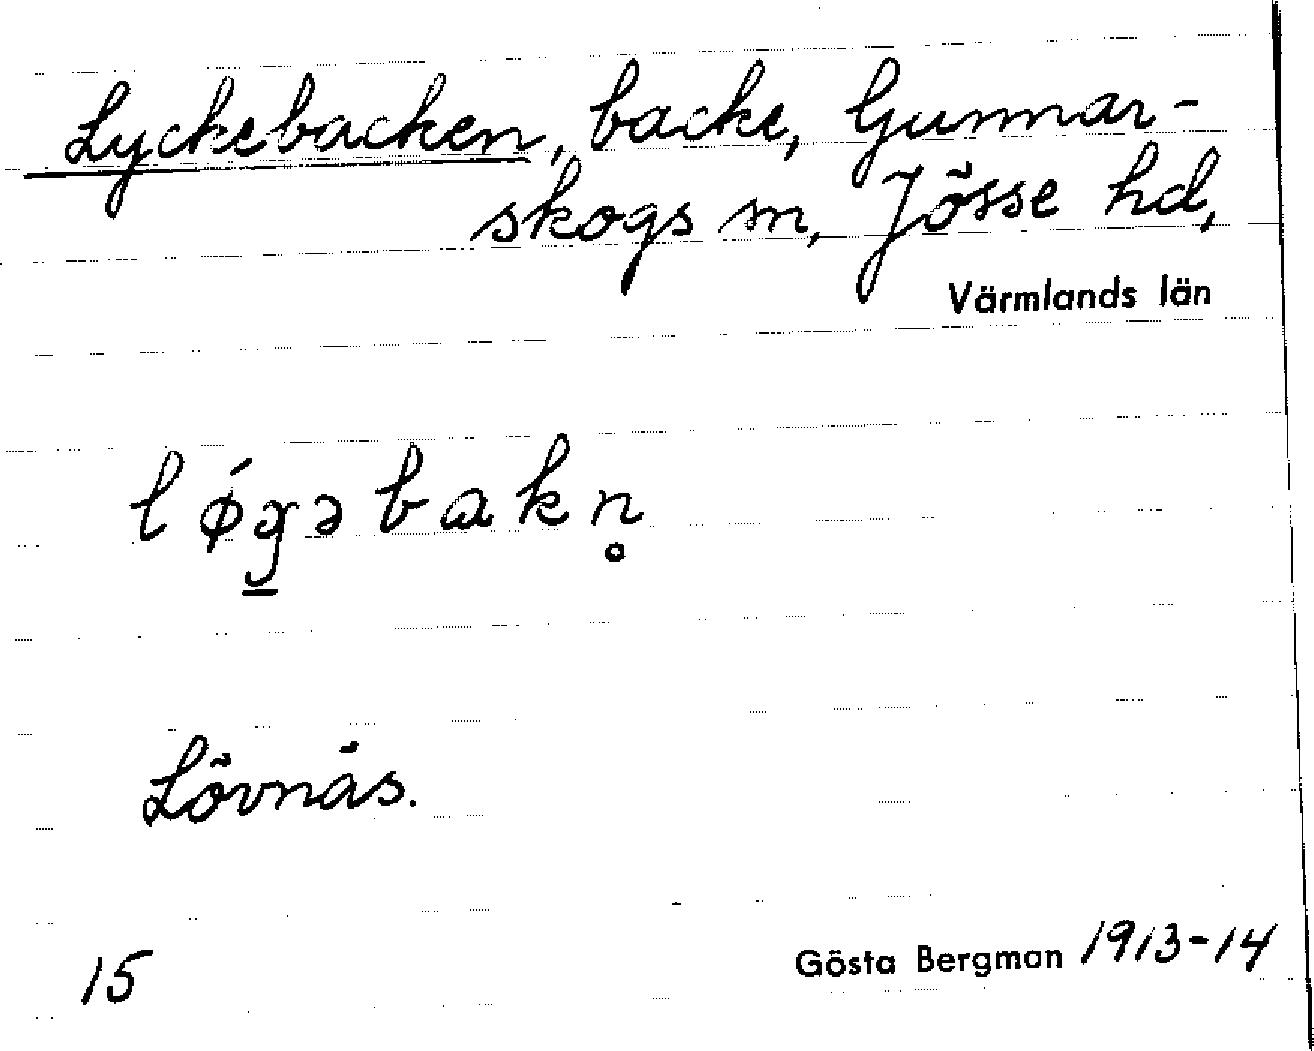 Lyckebacken, backe, Gunnar-
skogs sn, Jösse hd,
Värmlands län
lǿgəbakn̥
Lövnäs.
15
Gösta Bergman 1913-14